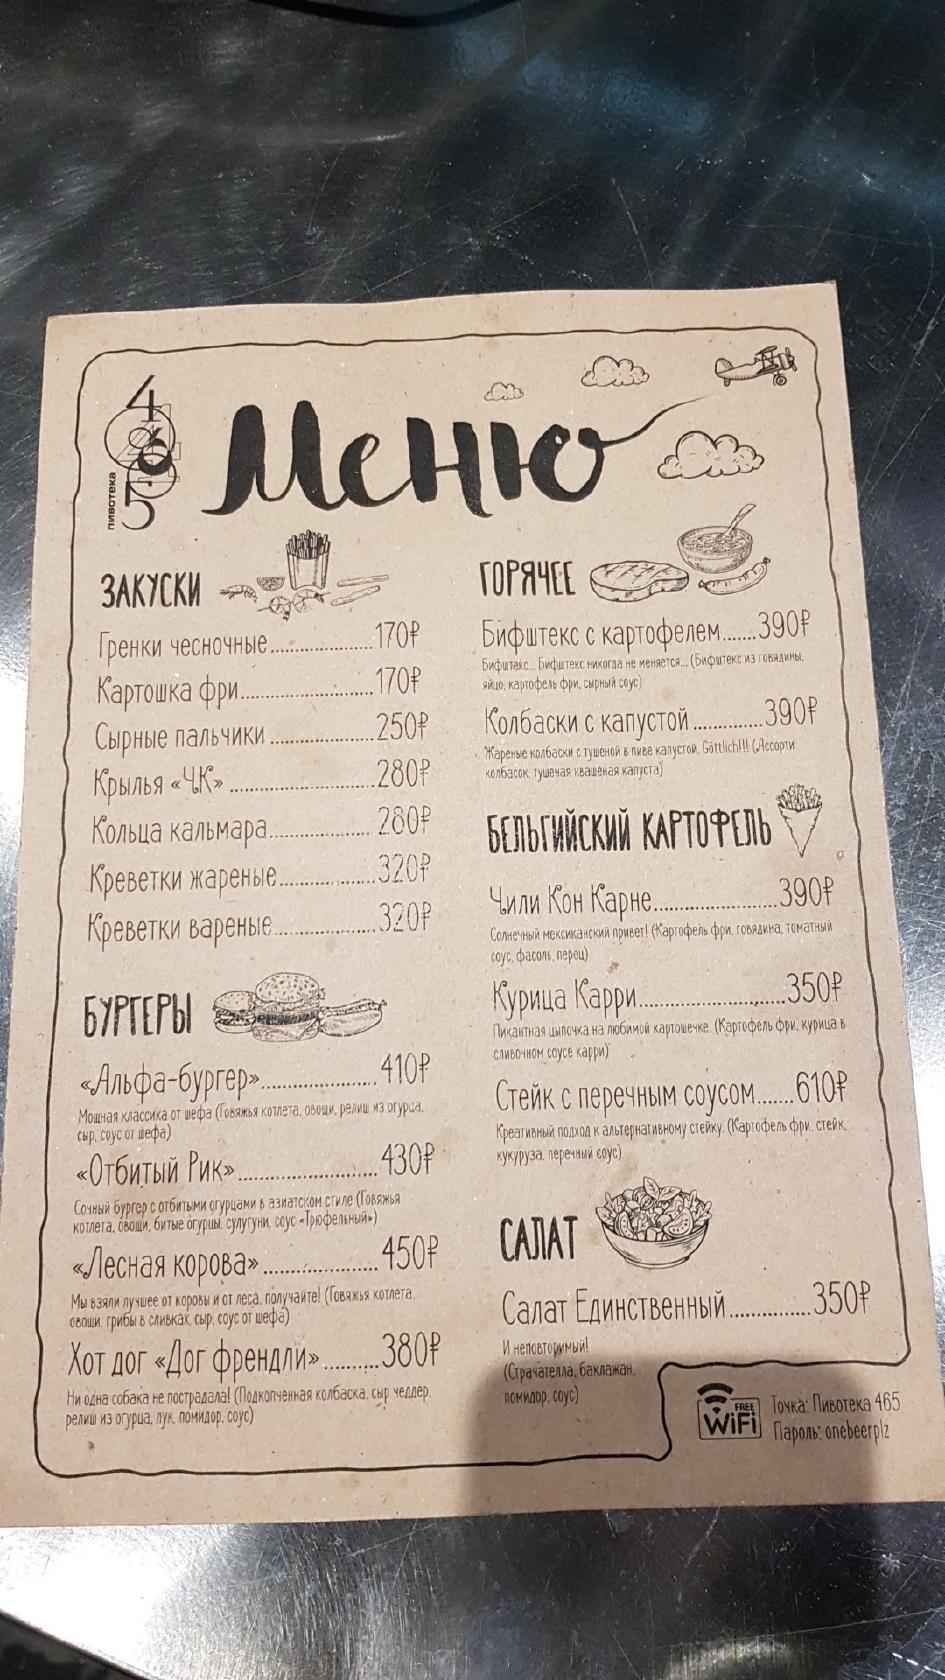 465
пивотека
Меню
ЗАКУСКИ
Гренки чесночные....................170₽
Картошка фри.........................170₽
Сырные пальчики....................250₽
Крылья «ЧК»..........................280₽
Кольца кальмара....................280₽
Креветки жареные..................320₽
Креветки вареные...................320₽
БУРГЕРЫ
«Альфа-бургер»......................410₽
Мощная классика от шефа (Говяжья котлета, овощи, релиш из огурца,
сыр, соус от шефа)
«Отбитый Рик»........................430₽
Сочный бургер с отбитыми огурцами в азиатском стиле (Говяжья
котлета, овощи, битые огурцы, сулугуни, соус «Трюфельный»)
«Лесная корова»....................450₽
Мы взяли лучшее от коровы и от леса, получайте! (Говяжья котлета,
овощи, грибы в сливках, сыр, соус от шефа)
Хот дог «Дог френдли».........380₽
Ни одна собака не пострадала! (Подкопченная колбаска, сыр чеддер,
релиш из огурца, лук, помидор, соус)
ГОРЯЧЕЕ
Бифштекс с картофелем......390₽
Бифштекс... Бифштекс никогда не меняется... (Бифштекс из говядины,
яйцо, картофель фри, сырный соус)
Колбаски с капустой.............390₽
Жареные колбаски с тушеной в пиве капустой. Göttlich!!! (Ассорти
колбасок, тушеная квашеная капуста)
БЕЛЬГИЙСКИЙ КАРТОФЕЛЬ
Чили Кон Карне......................390₽
Солнечный мексиканский привет! (Картофель фри, говядина, томатный
соус, фасоль, перец)
Курица Карри.........................350₽
Пикантная цыпочка на любимой картошечке. (Картофель фри, курица в
сливочном соусе карри)
Стейк с перечным соусом.......610₽
Креативный подход к альтернативному стейку. (Картофель фри, стейк,
кукуруза, перечный соус)
САЛАТ
Салат Единственный..............350₽
И неповторимый!
(Страчателла, баклажан,
помидор, соус)
FREE
WiFi
Точка: Пивотека 465
Пароль: onebeerplz